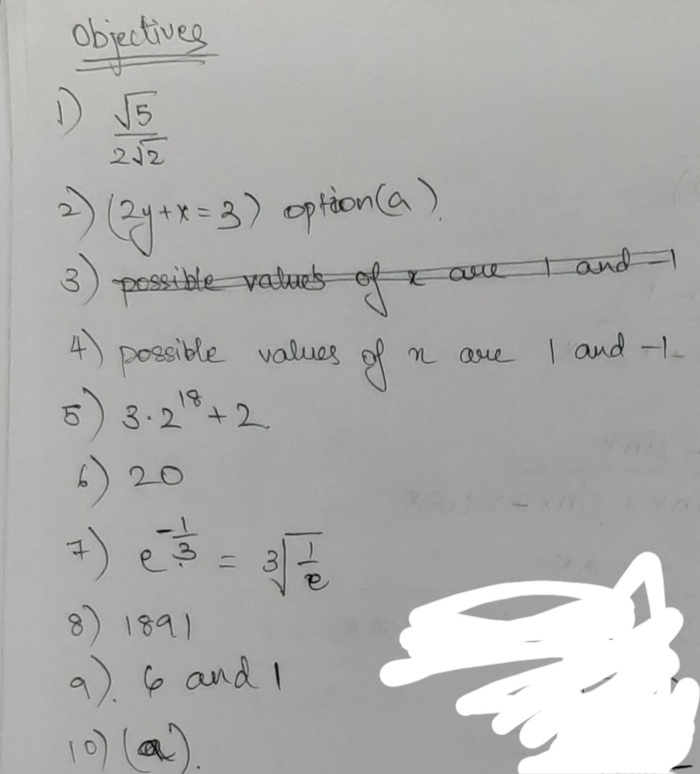 Objectives
1) √5/2√2
2) (2y+x=3) option(a).
3) possible values of x are 1 and -1
4) possible values of x are 1 and -1.
5) 3·2^18+2
6) 20
7) e^-1/3 = ∛(1/e)
8) 1891
9). 6 and 1
10) (a).